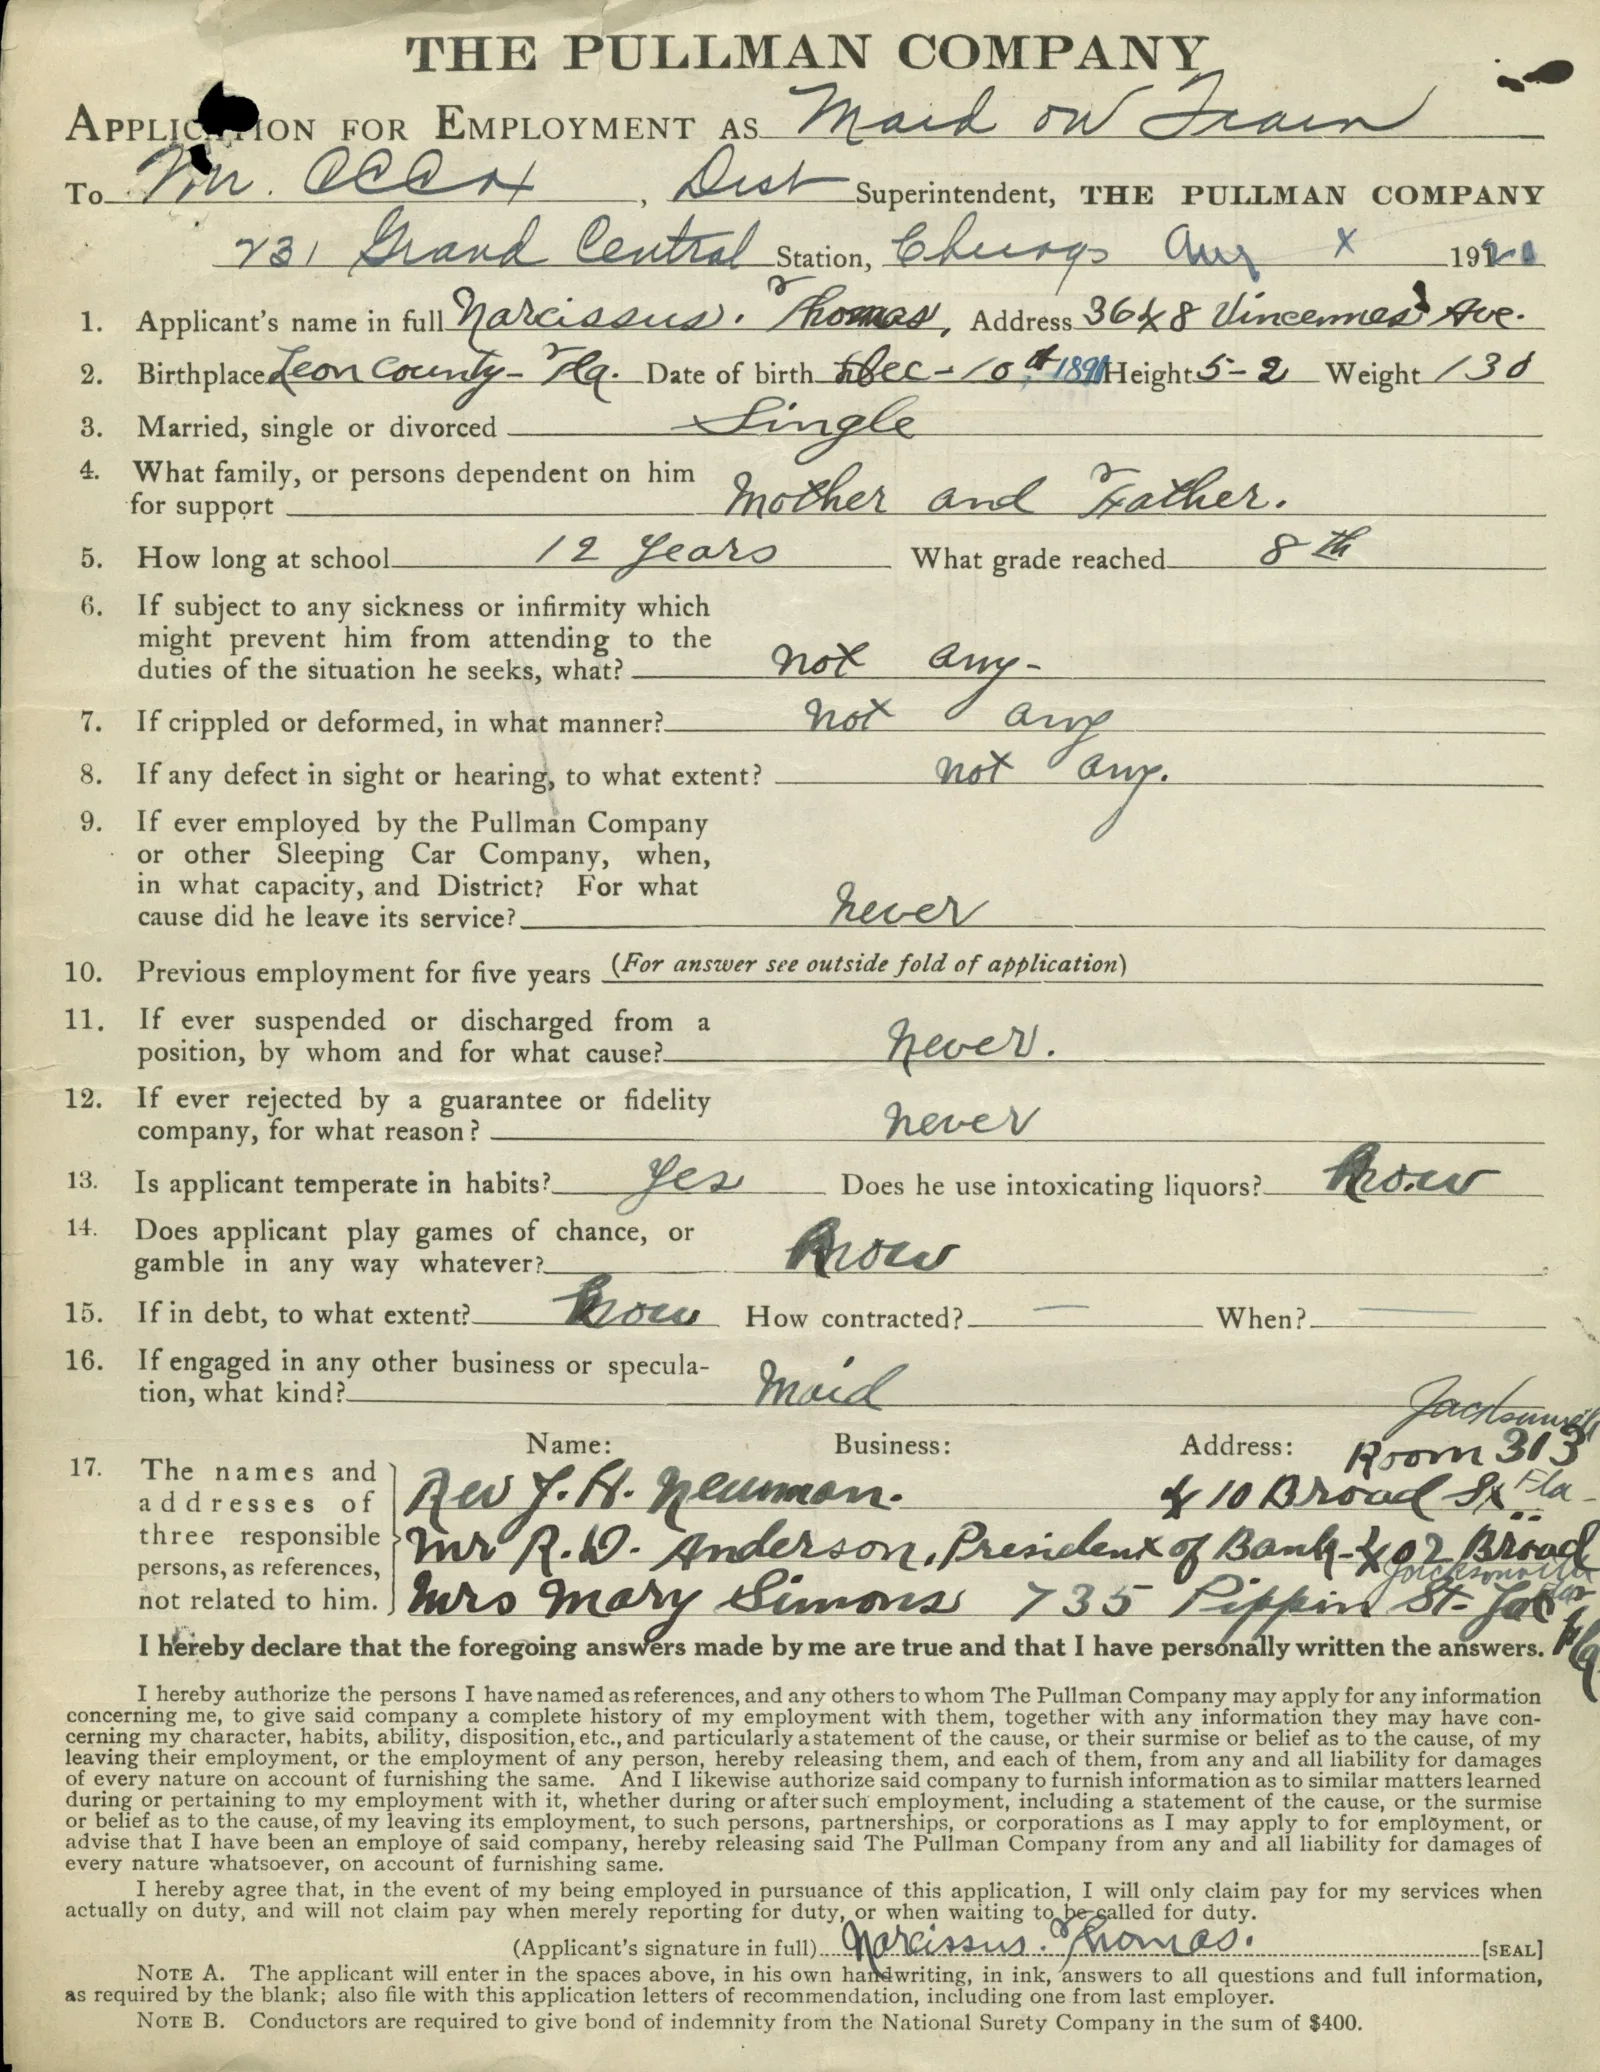 THE PULLMAN COMPANY
APPLICATION FOR EMPLOYMENT AS Maid on Train
To Mr. CCCox, Dist Superintendent, THE PULLMAN COMPANY
231 Grand Central Station, Chicago Aug 19
1. Applicant's name in full Narcissus. Thomas, Address 3648 Vincennes Ave.
2. Birthplace Leon County - Fla. Date of birth Dec - 10th, Height 5-2 Weight 130
3. Married, single or divorced Single
4. What family, or persons dependent on him
for support Mother and Father.
5. How long at school 12 years What grade reached 8th
6. If subject to any sickness or infirmity which
might prevent him from attending to the
duties of the situation he seeks, what? not any-
7. If crippled or deformed, in what manner? not any
8. If any defect in sight or hearing, to what extent? not any.
9. If ever employed by the Pullman Company
or other Sleeping Car Company, when,
in what capacity, and District? For what
cause did he leave its service? never
10. Previous employment for five years (For answer see outside fold of application)
11. If ever suspended or discharged from a
position, by whom and for what cause? never.
12. If ever rejected by a guarantee or fidelity
company, for what reason? never
13. Is applicant temperate in habits? yes Does he use intoxicating liquors? know
14. Does applicant play games of chance, or
gamble in any way whatever? know
15. If in debt, to what extent? know How contracted? — When? —
16. If engaged in any other business or specula-
tion, what kind? Maid
Name: Business: Address: Jacksonville
Room 313
17. The names and
addresses of
three responsible
persons, as references,
not related to him.
Rev J. H. Newman. 410 Broad St. Fla-
Mr R. D. Anderson, President of Bank - 402 Broad
Jacksonville
Mrs Mary Simons 735 Pippin St- Jac Fla
I hereby declare that the foregoing answers made by me are true and that I have personally written the answers.
I hereby authorize the persons I have named as references, and any others to whom The Pullman Company may apply for any information
concerning me, to give said company a complete history of my employment with them, together with any information they may have con-
cerning my character, habits, ability, disposition, etc., and particularly a statement of the cause, or their surmise or belief as to the cause, of my
leaving their employment, or the employment of any person, hereby releasing them, and each of them, from any and all liability for damages
of every nature on account of furnishing the same. And I likewise authorize said company to furnish information as to similar matters learned
during or pertaining to my employment with it, whether during or after such employment, including a statement of the cause, or the surmise
or belief as to the cause, of my leaving its employment, to such persons, partnerships, or corporations as I may apply to for employment, or
advise that I have been an employe of said company, hereby releasing said The Pullman Company from any and all liability for damages of
every nature whatsoever, on account of furnishing same.
I hereby agree that, in the event of my being employed in pursuance of this application, I will only claim pay for my services when
actually on duty, and will not claim pay when merely reporting for duty, or when waiting to be called for duty.
(Applicant's signature in full) Narcissus. Thomas. [SEAL]
NOTE A. The applicant will enter in the spaces above, in his own handwriting, in ink, answers to all questions and full information,
as required by the blank; also file with this application letters of recommendation, including one from last employer.
NOTE B. Conductors are required to give bond of indemnity from the National Surety Company in the sum of $400.